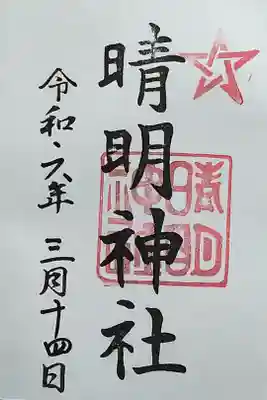 晴明神社
令和六年 三月十四日
晴明神社